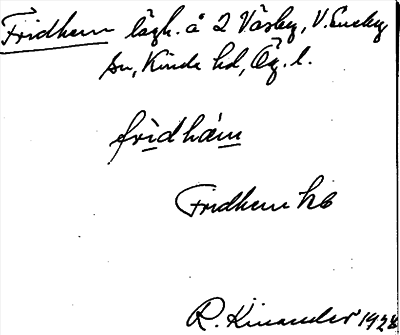 Fridhem lägh. å 2 Väsby, V. Eneby
sn, Kinda hd, Ög. l.
fridhäm
Fridhem hb
R. Kinander 1928